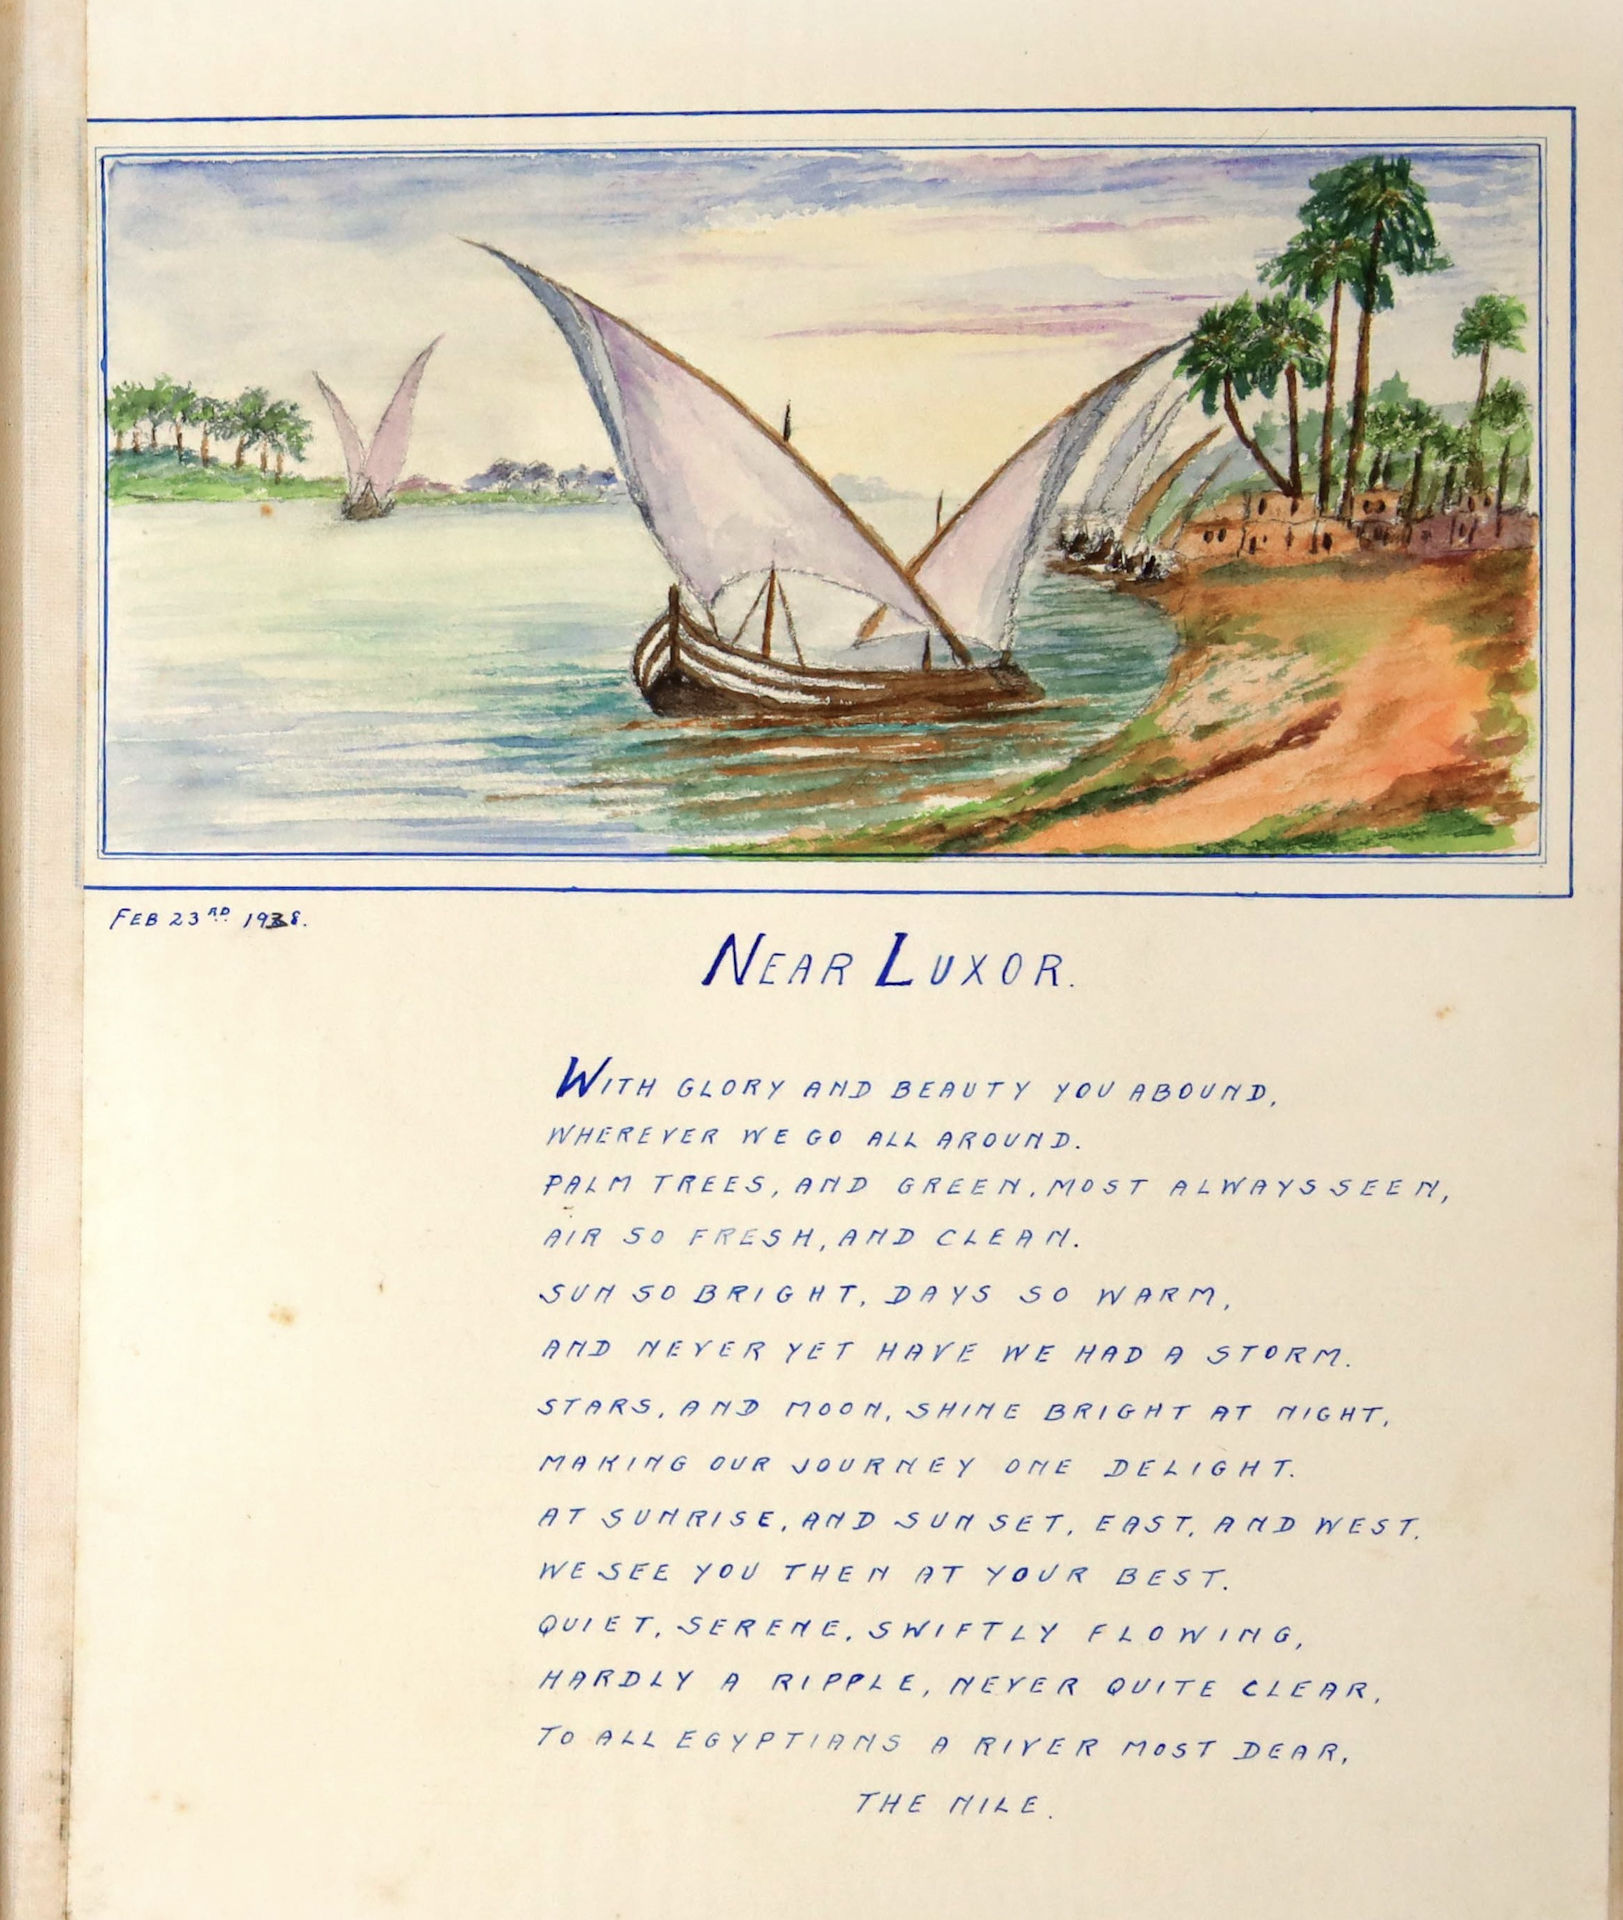 FEB 23RD 1938.
NEAR LUXOR.
WITH GLORY AND BEAUTY YOU ABOUND,
WHEREVER WE GO ALL AROUND.
PALM TREES, AND GREEN, MOST ALWAYS SEEN,
AIR SO FRESH, AND CLEAN.
SUN SO BRIGHT, DAYS SO WARM,
AND NEVER YET HAVE WE HAD A STORM.
STARS, AND MOON, SHINE BRIGHT AT NIGHT,
MAKING OUR JOURNEY ONE DELIGHT.
AT SUNRISE, AND SUNSET, EAST, AND WEST.
WE SEE YOU THEN AT YOUR BEST.
QUIET, SERENE, SWIFTLY FLOWING,
HARDLY A RIPPLE, NEVER QUITE CLEAR,
TO ALL EGYPTIANS A RIVER MOST DEAR,
THE NILE.